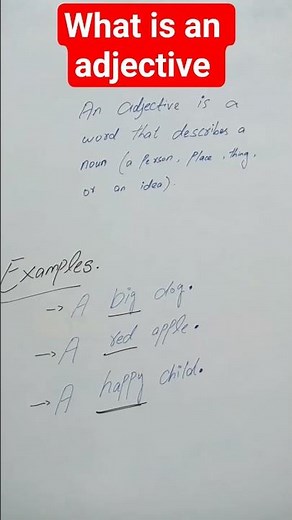 What is an
adjective
An adjective is a
word that describes a
noun (a Person, Place, thing,
or an idea).
Examples.
→ A big dog.
→ A red apple.
→ A happy child.